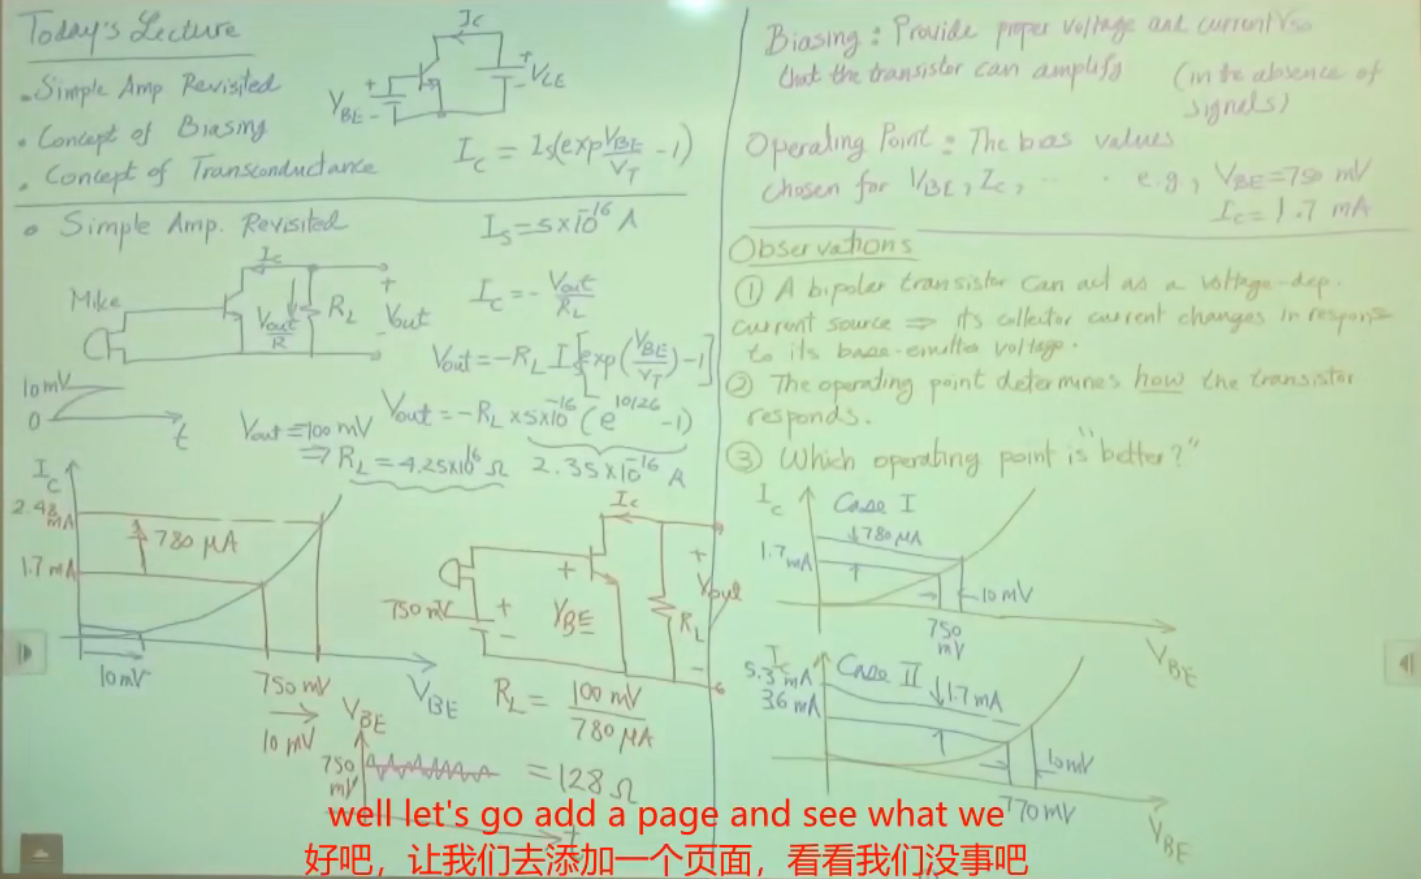 Today's Lecture
• Simple Amp Revisited
• Concept of Biasing
• Concept of Transconductance
Ic
+
VBE
-
+
VCE
-
Ic = Is(exp VBE/VT - 1)
• Simple Amp. Revisited
Is = 5×10^-16 A
Mike
Ic
Vout/R
RL
+
Vout
-
Ic = - Vout/RL
Vout = -RL Is[exp(VBE/VT) - 1]
10mV
0
t
Vout = -RL × 5×10^-16 (e^10/26 - 1)
Vout = 100 mV
⇒ RL = 4.25×10^16 Ω
2.35×10^-16 A
Ic
2.48 mA
780 μA
1.7 mA
10mV
750 mV
VBE
10 mV
Ic
750 mV
+
-
+
VBE
RL
+
Vout
-
RL = 100 mV/780 μA
= 128 Ω
VBE
750 mV
t
Biasing: Provide proper voltage and current so
that the transistor can amplify (in the absence of
signals)
Operating Point: The bias values
chosen for VBE, Ic, ... . e.g., VBE = 750 mV
Ic = 1.7 mA
Observations
① A bipolar transistor can act as a voltage-dep.
current source ⇒ its collector current changes in response
to its base-emitter voltage.
② The operating point determines how the transistor
responds.
③ Which operating point is "better?"
Ic
Case I
780 μA
1.7 mA
10mV
750 mV
VBE
Ic
Case II
5.3 mA
1.7 mA
36 mA
10mV
770 mV
VBE
well let's go add a page and see what we
好吧，让我们去添加一个页面，看看我们没事吧